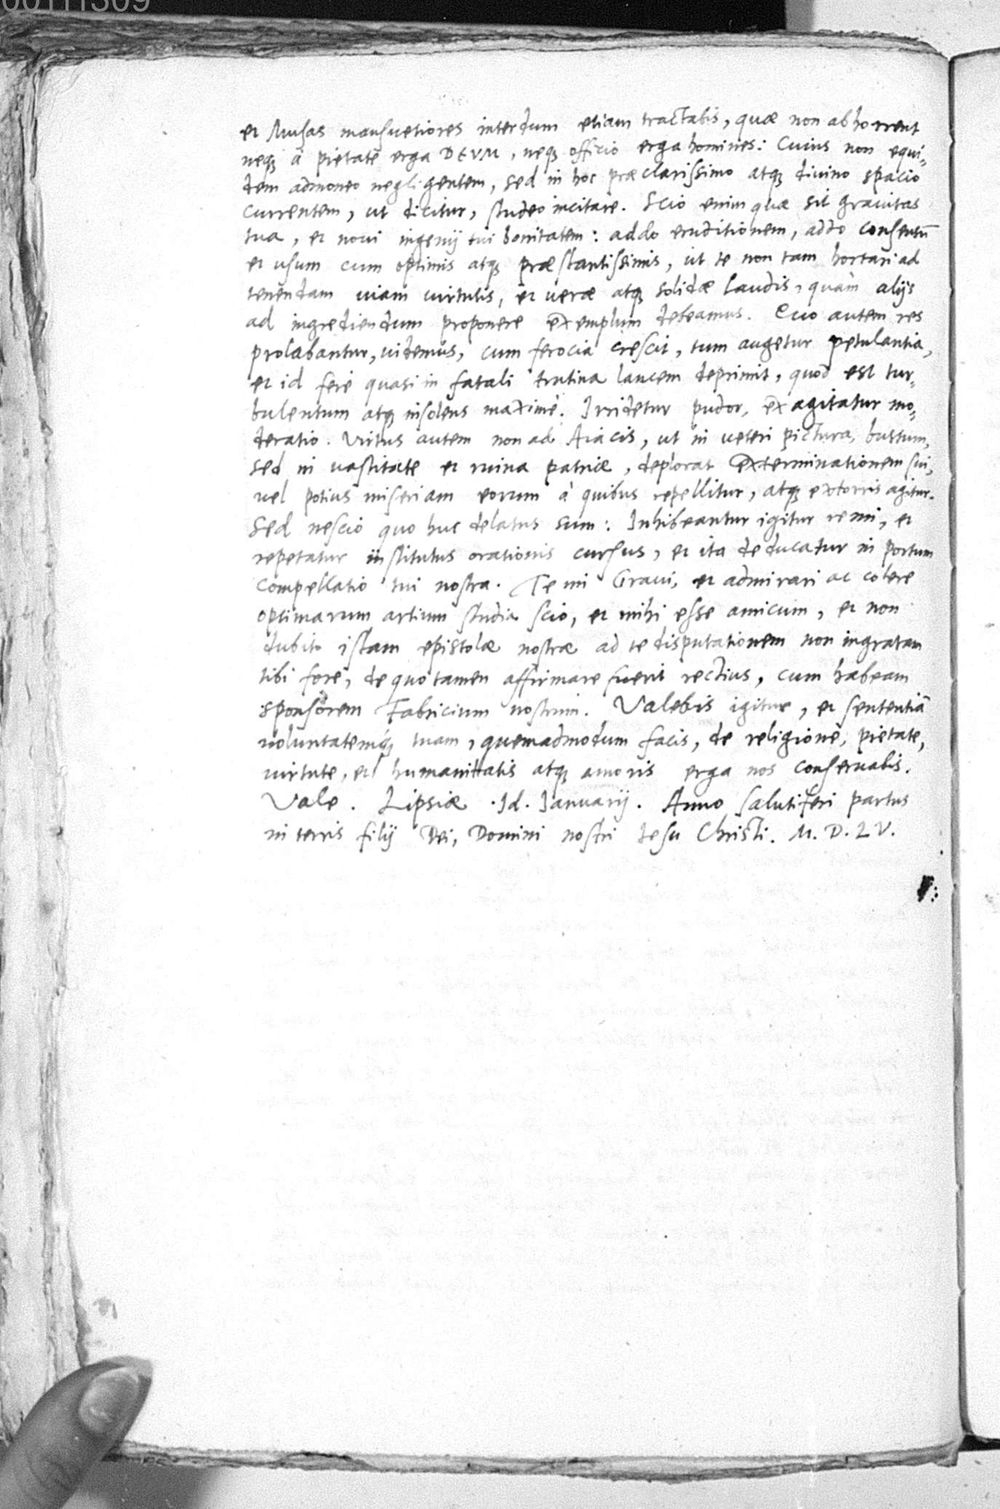 00111309
et Musas mansuetiores interdum etiam tractabis, quæ non abhorrent
neq; à pietate erga DEVM, neq; officio erga homines: Cuius non equi-
dem admoneo negligentem, sed in hoc præclarissimo atq; divino spacio
currentem, ut dicitur, studeo incitare. Scio enim quæ sit gravitas
tua, et novi ingenij tui bonitatem: addo eruditionem, addo consensū
et usum cum optimis atq; præstantissimis, ut te non tam hortari ad
tenendam viam virtutis, et veræ atq; solidæ laudis, quàm alijs
ad ingrediendum proponere exemplum debeamus. Quo autem res
prolabantur, videmus, cum ferocia crescit, tum augetur petulantia,
et id ferè quasi in fatali trutina lancem deprimit, quod est tur-
bulentum atq; insolens maximè. Irridetur pudor, exagitatur mo-
deratio. Virtus autem non ad Aiacis, ut in veteri pictura, bustum,
sed in vastitate et ruina patriæ, deplorat exterminationem sui,
vel potius miseriam eorum à quibus repellitur, atq; extorris agitur.
Sed nescio quo huc delatus sum: Inhibeantur igitur remi, et
repetatur institutus orationis cursus, et ita deducatur in portum
compellatio tui nostra. Te mi Gravi, et admirari ac colere
optimarum artium studia scio, et mihi esse amicum, et non
dubito istam epistolæ nostræ ad te disputationem non ingratam
tibi fore, de quo tamen affirmare fuerit rectius, cum habeam
sponsorem Fabricium nostrum. Valebis igitur, et sententiā
voluntatemq; tuam, quemadmodum facis, de religione, pietate,
virtute, et humanitatis atq; amoris erga nos conservabis.
Vale. Lipsiæ. Id. Ianuarij. Anno salutiferi partus
in terris filij Dei, Domini nostri Iesu Christi. M.D.LV.